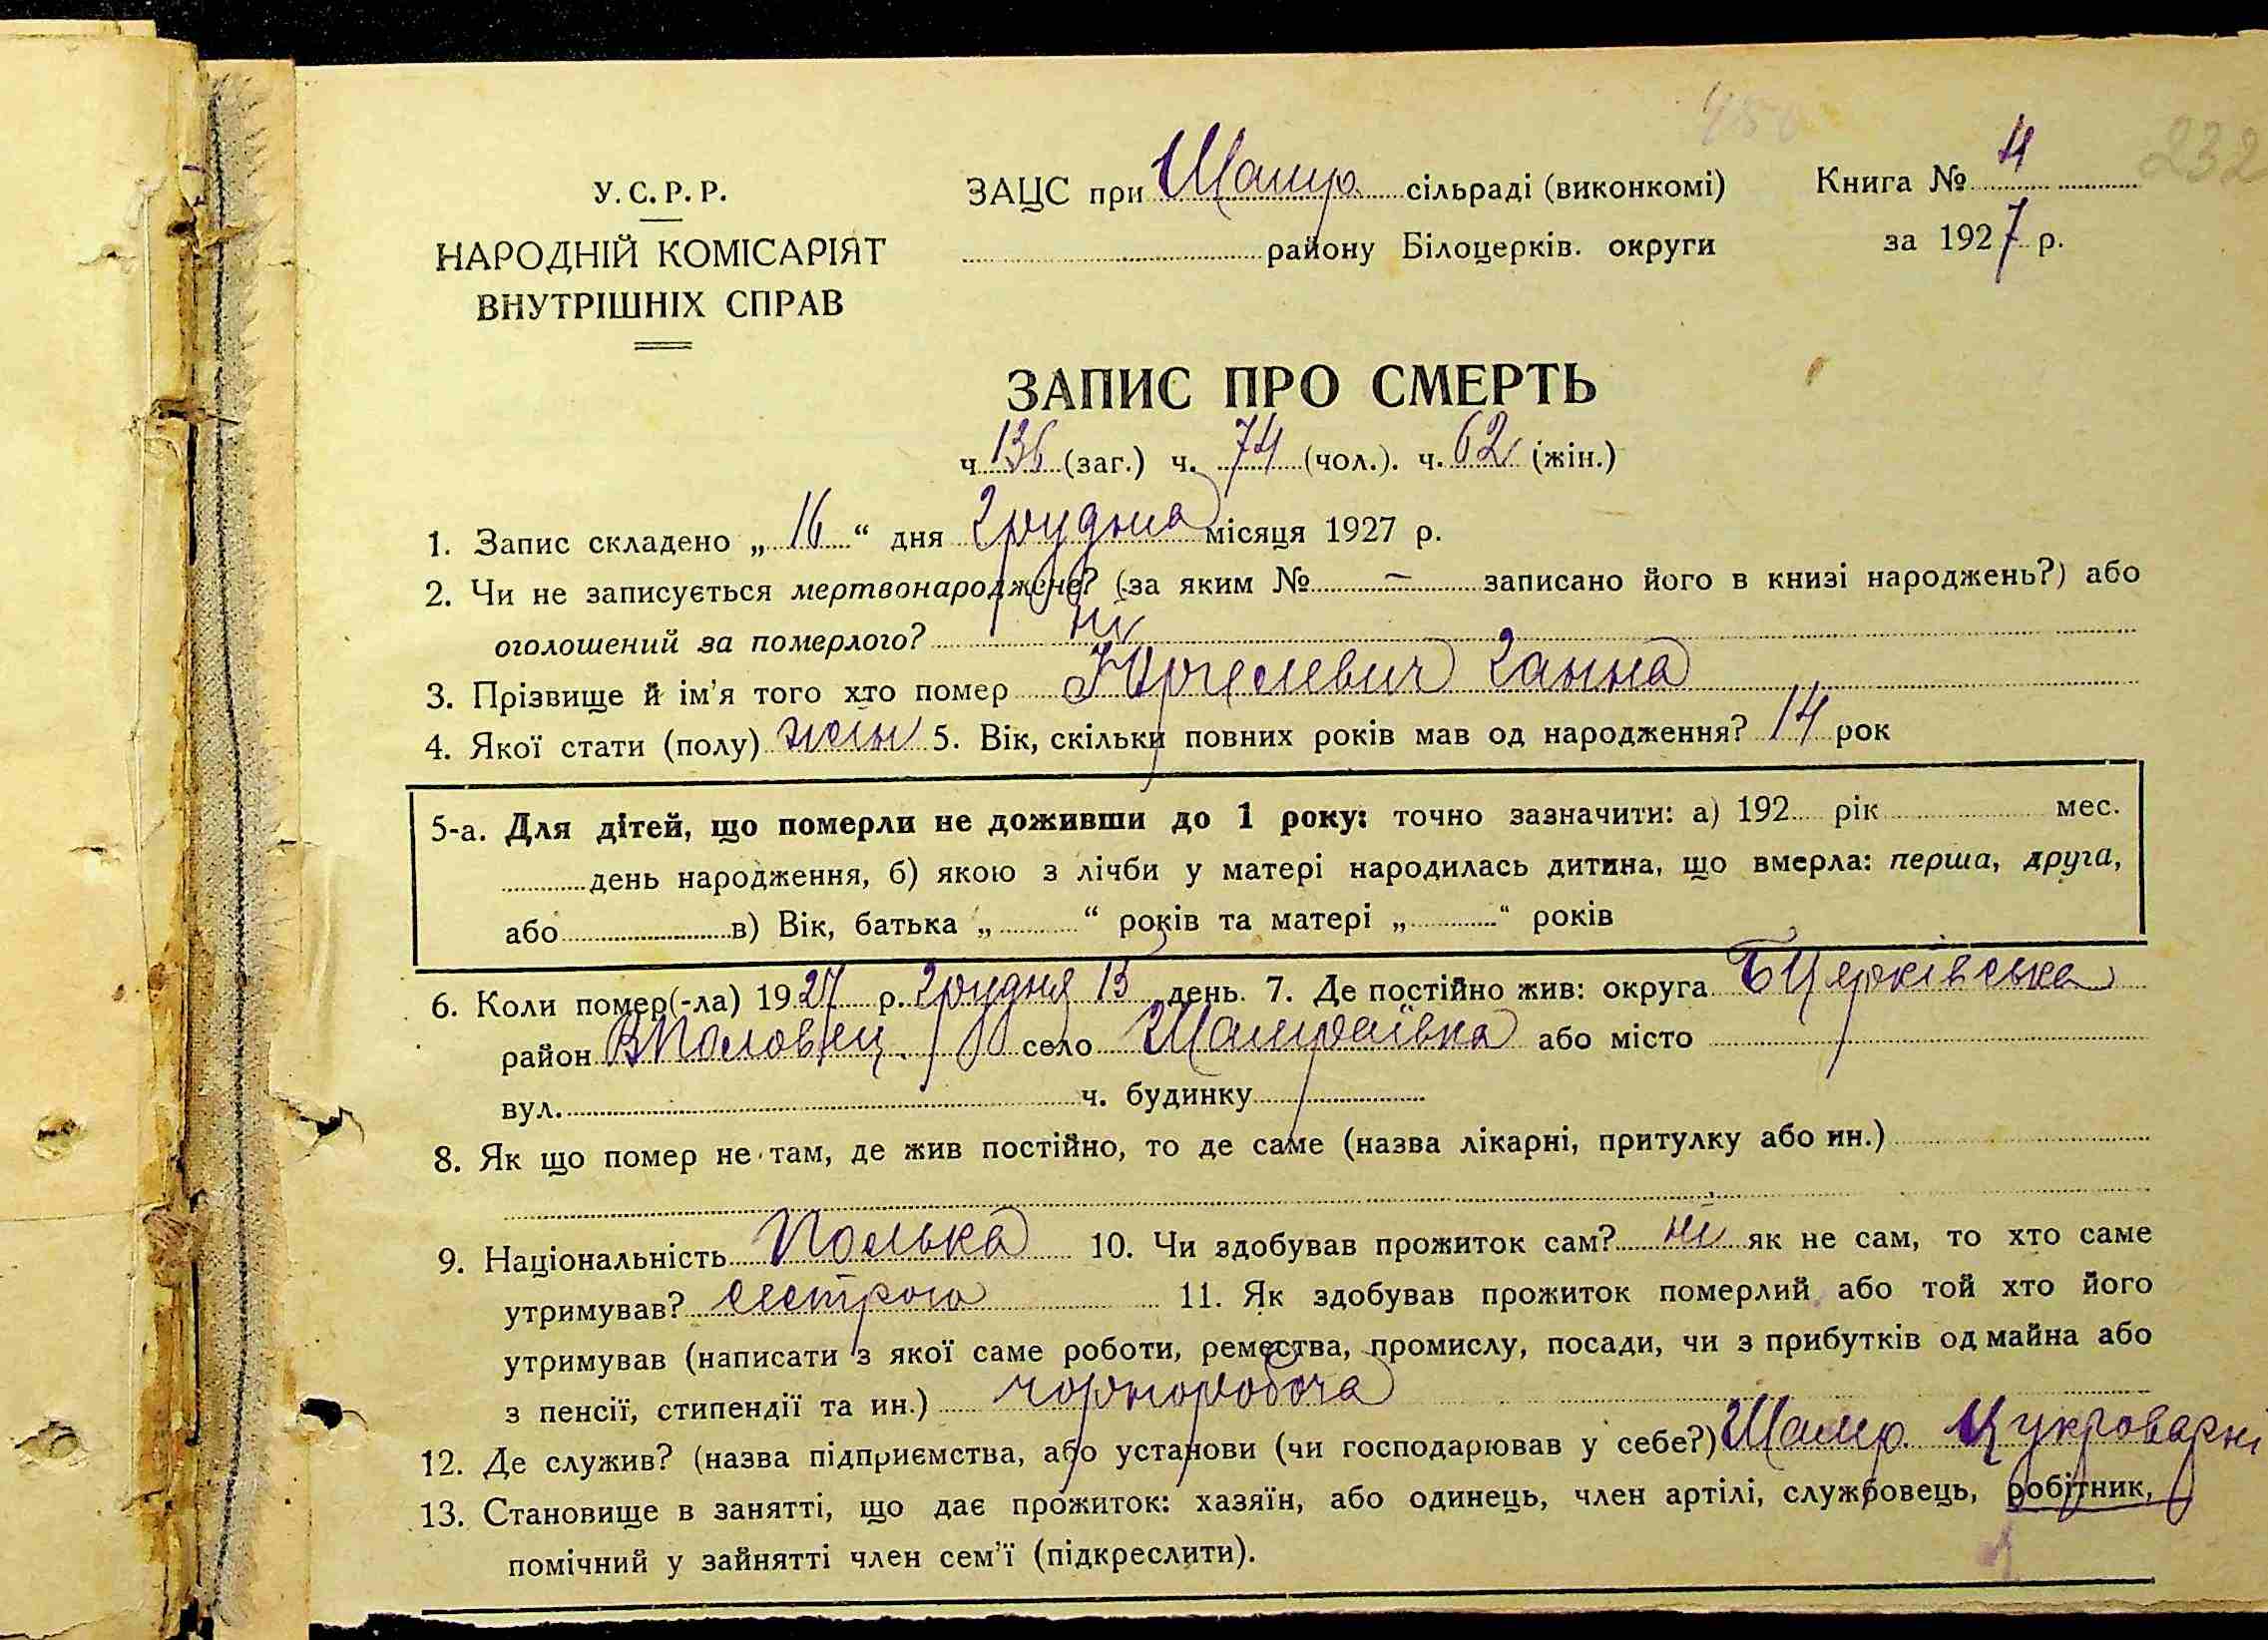 232
У. С. Р. Р.
НАРОДНІЙ КОМІСАРІЯТ
ВНУТРІШНІХ СПРАВ
ЗАЦС при Шамр. сільраді (виконкомі)
району Білоцерків. округи
Книга № 4
за 1927 р.
ЗАПИС ПРО СМЕРТЬ
ч 136 (заг.) ч. 74 (чол.). ч. 62 (жін.)
1. Запис складено „ 16 “ дня Грудна місяця 1927 р.
2. Чи не записується мертвонароджене? (за яким № — записано його в книзі народжень?) або
оголошений за померлого? ні
3. Прізвище й ім'я того хто помер Ганна
4. Якої стати (полу) жін 5. Вік, скільки повних років мав од народження? 14 рок
5-а. Для дітей, що померли не доживши до 1 року: точно зазначити: а) 192 рік мес.
день народження, б) якою з лічби у матері народилась дитина, що вмерла: перша, друга,
або в) Вік, батька „ “ років та матері „ “ років
6. Коли помер(-ла) 1927 р. Грудня 15 день. 7. Де постійно жив: округа БЦерківська
район ВПоловец. село Шамраївка або місто
вул. ч. будинку
8. Як що помер не там, де жив постійно, то де саме (назва лікарні, притулку або ин.)
9. Національність Полька 10. Чи здобував прожиток сам? ні як не сам, то хто саме
утримував? сестрою 11. Як здобував прожиток померлий або той хто його
утримував (написати з якої саме роботи, ремества, промислу, посади, чи з прибутків од майна або
з пенсії, стипендії та ин.) чорноробоча
12. Де служив? (назва підприємства, або установи (чи господарював у себе?) Шамр. Цукроварні
13. Становище в занятті, що дає прожиток: хазяїн, або одинець, член артілі, службовець, робітник,
помічний у зайнятті член сем'ї (підкреслити).